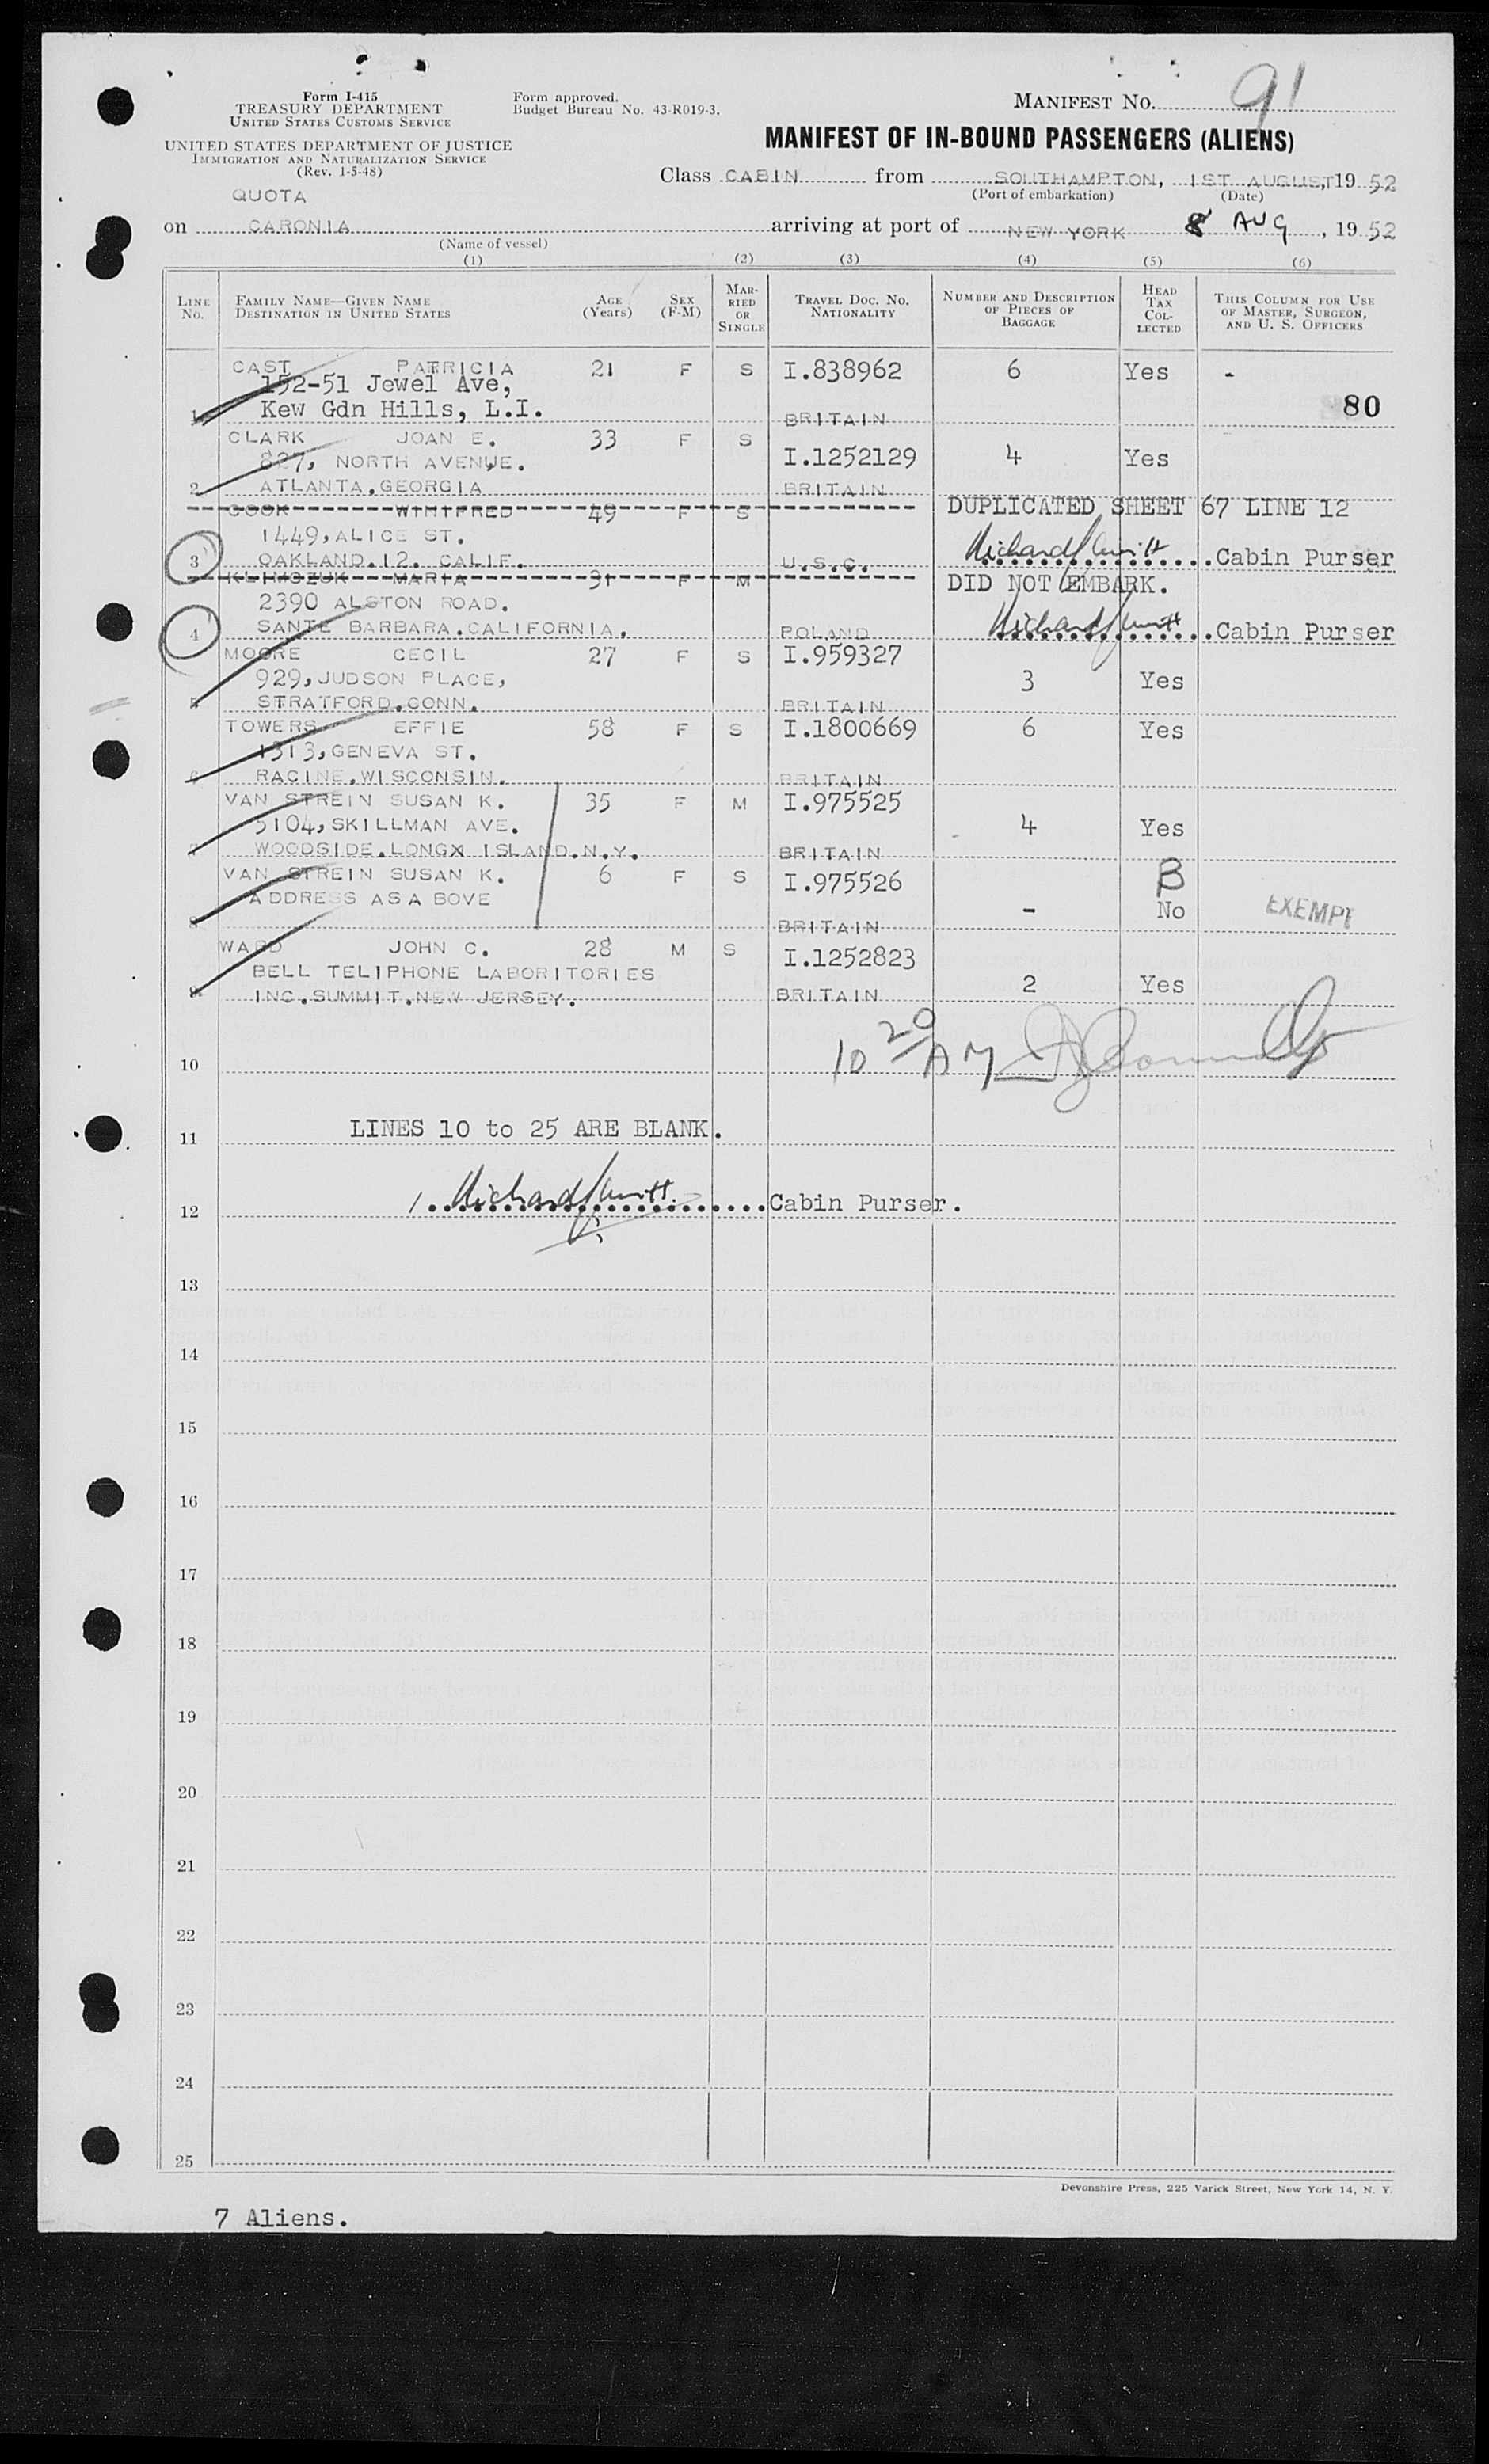 Form I-415
TREASURY DEPARTMENT
UNITED STATES CUSTOMS SERVICE
UNITED STATES DEPARTMENT OF JUSTICE
IMMIGRATION AND NATURALIZATION SERVICE
(Rev. 1-5-48)
Form approved.
Budget Bureau No. 43-R019-3.
MANIFEST No. 91
MANIFEST OF IN-BOUND PASSENGERS (ALIENS)
Class CABIN from SOUTHAMPTON, 1ST AUGUST, 19 52
(Port of embarkation) (Date)
QUOTA
on CARONIA arriving at port of NEW YORK 8 AUG, 19 52
(Name of vessel)
(1) (2) (3) (4) (5) (6)
LINE No. FAMILY NAME—GIVEN NAME DESTINATION IN UNITED STATES AGE (Years) SEX (F-M) MARRIED OR SINGLE TRAVEL DOC. NO. NATIONALITY NUMBER AND DESCRIPTION OF PIECES OF BAGGAGE HEAD TAX COLLECTED THIS COLUMN FOR USE OF MASTER, SURGEON, AND U. S. OFFICERS
CAST PATRICIA 21 F S I.838962 6 Yes -
152-51 Jewel Ave,
1 Kew Gdn Hills, L.I. BRITAIN 80
CLARK JOAN E. 33 F S I.1252129 4 Yes
827, NORTH AVENUE.
2 ATLANTA.GEORGIA BRITAIN
COOK WINIFRED 49 F S DUPLICATED SHEET 67 LINE 12
1449, ALICE ST.
3 OAKLAND.12. CALIF. U.S.C. Cabin Purser
KLIMCZUK MARIA 31 F M DID NOT EMBARK.
2390 ALSTON ROAD.
4 SANTE BARBARA.CALIFORNIA. POLAND Cabin Purser
MOORE CECIL 27 F S I.959327
929, JUDSON PLACE, 3 Yes
5 STRATFORD.CONN. BRITAIN
TOWERS EFFIE 58 F S I.1800669 6 Yes
1313, GENEVA ST.
6 RACINE.WISCONSIN. BRITAIN
VAN STREIN SUSAN K. 35 F M I.975525
5104, SKILLMAN AVE. 4 Yes
7 WOODSIDE.LONGX ISLAND.N.Y. BRITAIN
VAN STREIN SUSAN K. 6 F S I.975526 B
ADDRESS ASA BOVE - No EXEMPT
8 BRITAIN
WARD JOHN C. 28 M S I.1252823
BELL TELIPHONE LABORITORIES 2 Yes
9 INC.SUMMIT.NEW JERSEY. BRITAIN
10 10 20 AM
LINES 10 to 25 ARE BLANK.
11
12 Cabin Purser.
13
14
15
16
17
18
19
20
21
22
23
24
25
Devonshire Press, 225 Varick Street, New York 14, N. Y.
7 Aliens.